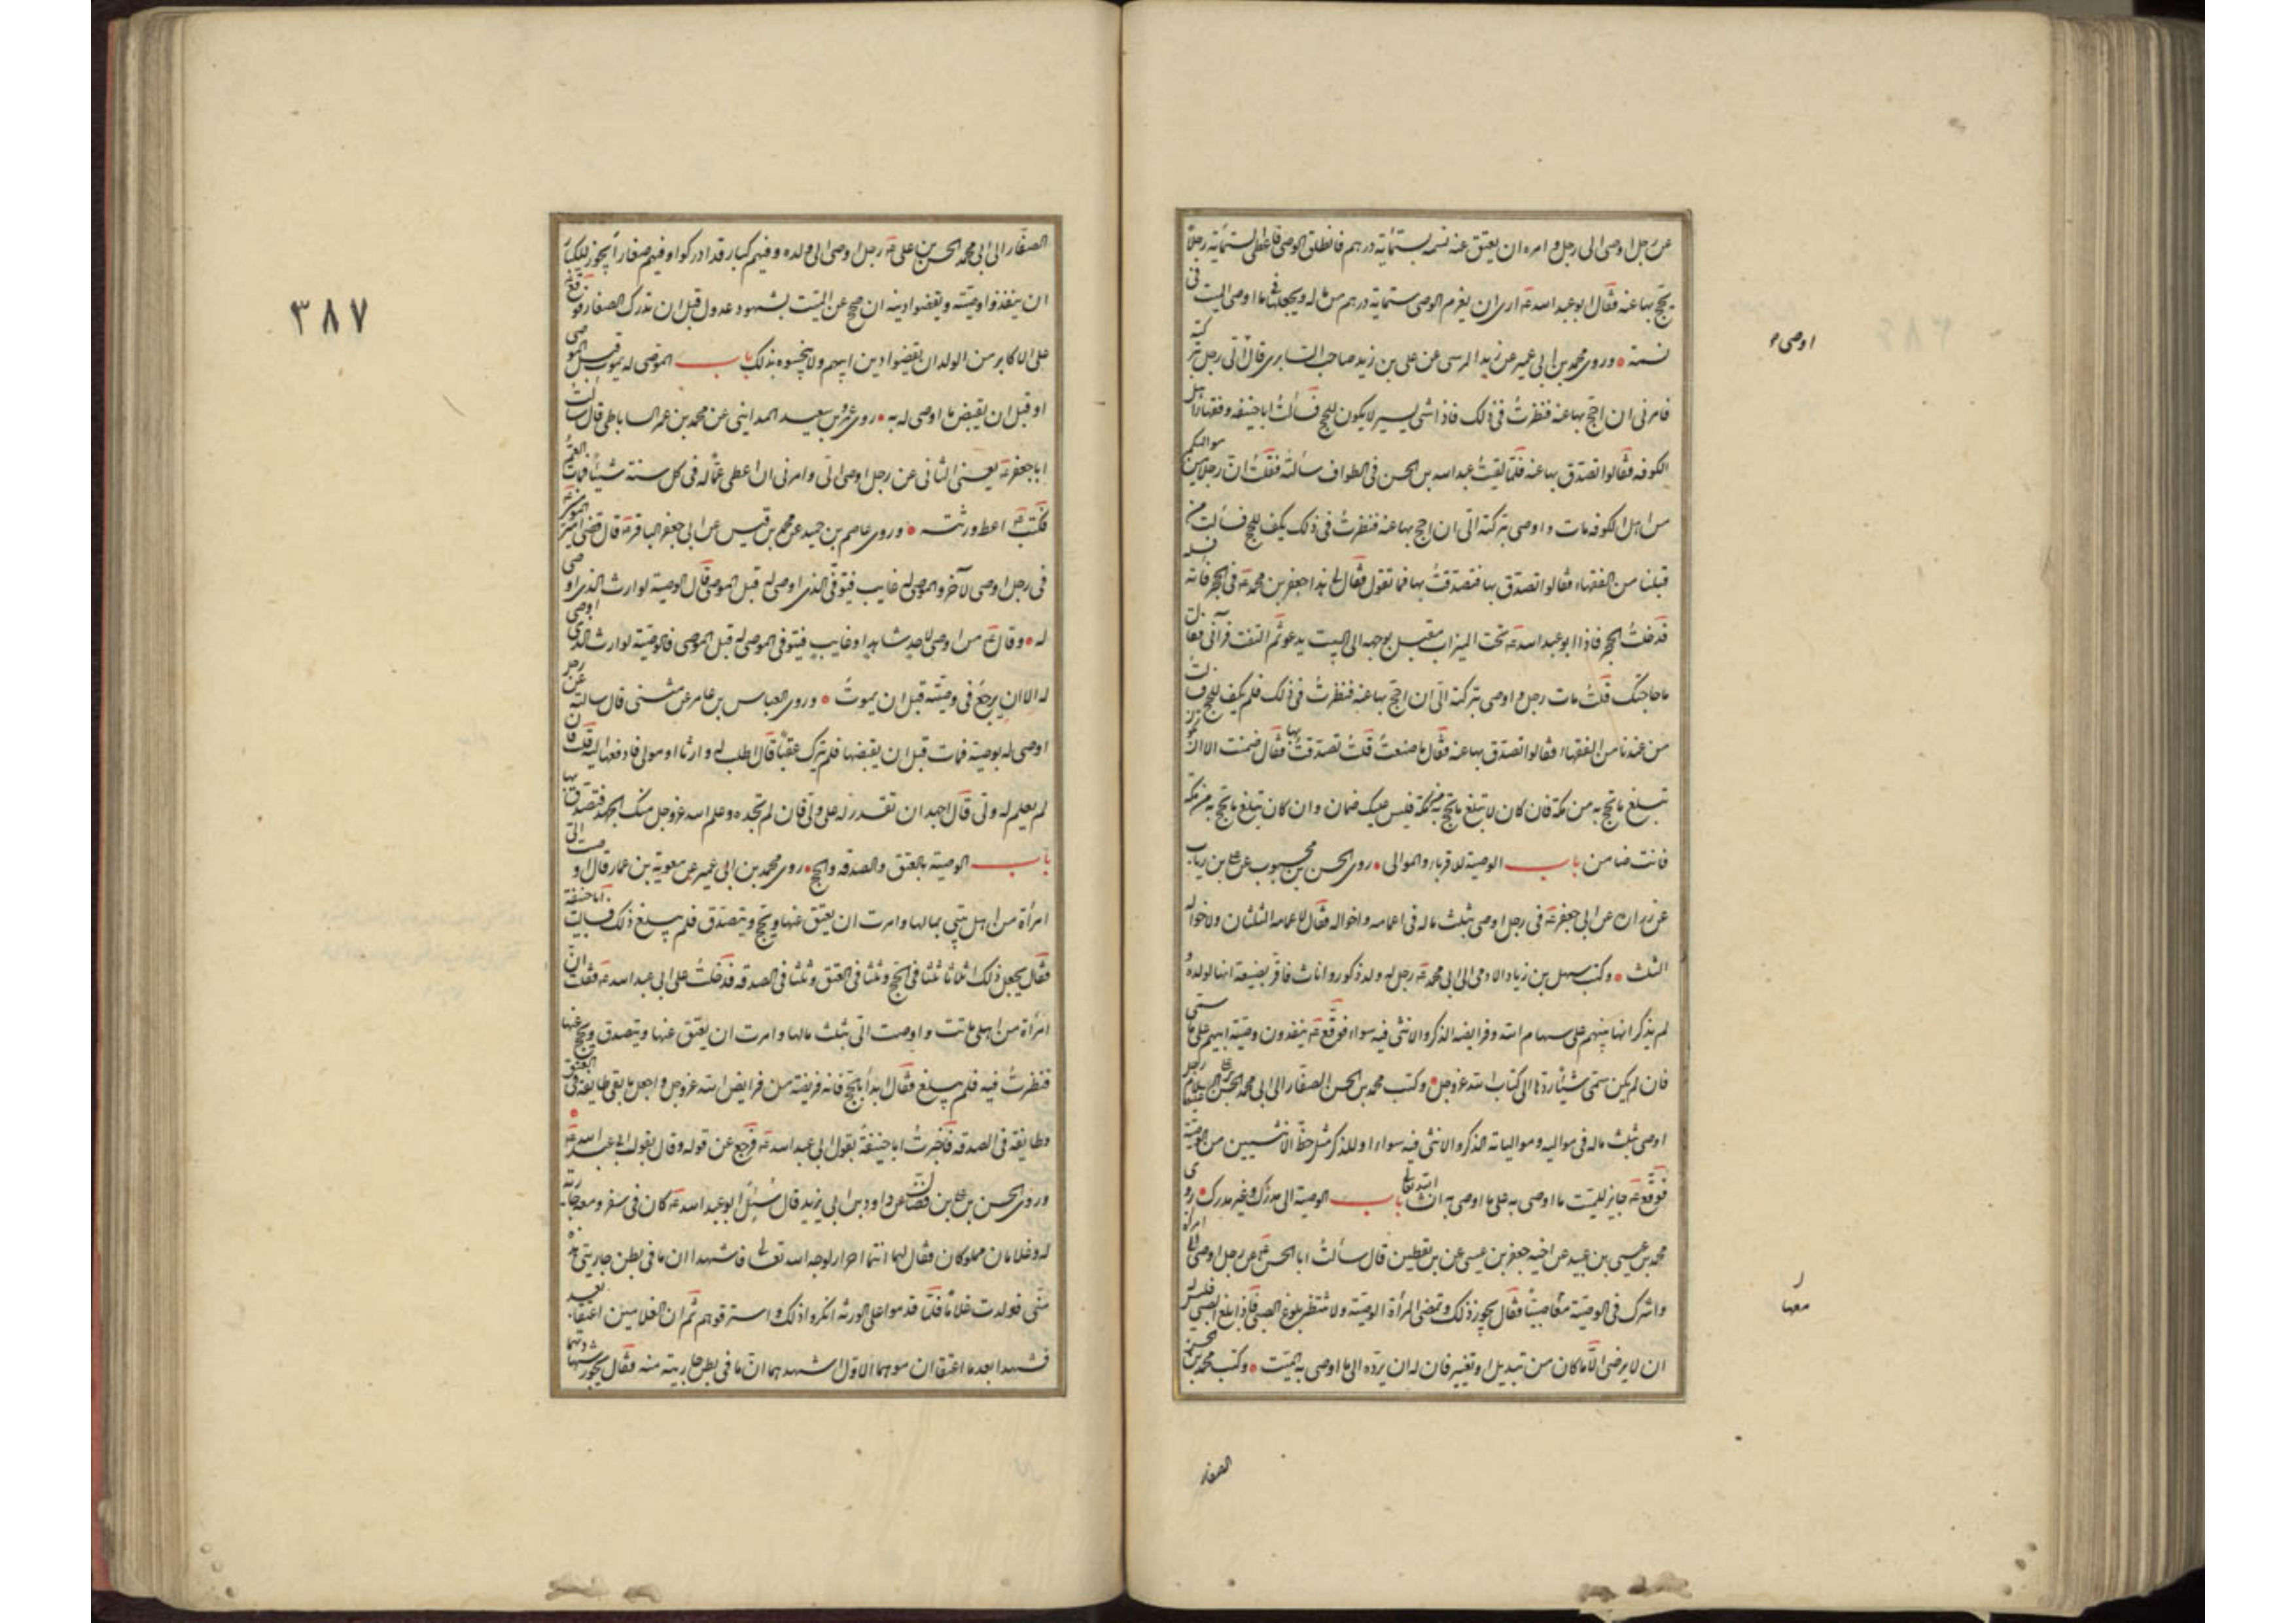 عن رجل اوصى الى رجل و امره ان يعتق عنه نسمة بستمائة درهم فانطلق الوصى فاعطى الستمائة رجلاً
يحج بها عنه فقال ابو عبد الله عه ارى ان يغرم الوصى ستمائة درهم من ماله و يجعلها فى ما اوصى الميت فى
نسمة ٠ و روى محمد بن ابى عمير عن زيد النرسى عن على بن زيد صاحب السابرى قال اتى رجل بتركته
فامرنى ان احج بها عنه فنظرتُ فى ذلك فاذا شى يسير لا يكون للحج فسألتُ اباحنيفه و فقهاء اهل
الكوفه فقالوا تصدق بها عنه فلما لقيتُ عبد الله بن الحسن فى الطواف سألته فقلتُ ان رجلاً من مواليكم
من اهل الكوفه مات و اوصى بتركته الىّ ان احج بها عنه فنظرتُ فى ذلك يكف للحج فسألت من
قبلنا من الفقهاء فقالوا تصدق بها فتصدقتُ بها فما تقول فقال لى هذا جعفر بن محمد عه فى الحجر فأته فسله
فدخلتُ الحجر فاذا ابو عبد الله عه تحت الميزاب مقبل بوجهه الى البيت يدعو ثم التفت فرآنى فقال
ما حاجتك قلتُ مات رجل و اوصى بتركته الىّ ان احج بها عنه فنظرتُ فى ذلك فلم يكف للحج فسألت
من عندنا من الفقهاء فقالوا تصدق بها عنه فقال ما صنعتَ قلتُ تصدقتُ بها فقال ضمنت الا ان
تبلغ ما تحج به من مكة فان كان لا تبلغ ما تحج به من مكة فليس عليك ضمان و ان كان تبلغ ما تحج به من مكة
فانت ضامن باب الوصية للاقرباء و الموالى ٠ روى الحسن بن محبوب عن على بن رياب
عن زراره عن ابى جعفر عه فى رجل اوصى بثلث ماله فى اعمامه و اخواله فقال لاعمامه الثلثان و لاخواله
الثلث ٠ و كتب سهل بن زياد الادمى الى ابى محمد عه رجل له ولد ذكور و اناث فاقر بضيعة انها لولده و
لم يذكر انها بينهم على سهام الله و فرايضه الذكر و الانثى فيه سواء فوقع عه ينفذون وصية ابيهم على ما سمى
فان لم يكن سمى شيئاً ردوها الى كتاب الله عز و جل ٠ و كتب محمد بن الحسن الصفار الى ابى محمد الحسن عليهما السلام رجل
اوصى بثلث ماله فى مواليه و مواليانه الذكر و الانثى فيه سواء او للذكر مثل حظ الانثيين من الوصية
فوقع عه جايز للميت ما اوصى به على ما اوصى به ان شاء الله تعالى باب الوصية الى مدرك و غير مدرك ٠ روى
محمد بن عيسى بن عبيد عن اخيه جعفر بن عيسى عن بن يقطين قال سألتُ ابا الحسن عه عن رجل اوصى الى امرأة
و اشرك فى الوصية معها صبياً فقال يجوز ذلك و تمضى المرأة الوصية و لا تنتظر بلوغ الصبى فاذا بلغ الصبى فليس له
ان لا يرضى الّا ما كان من تبديل او تغيير فان له ان يرده الى ما اوصى به الميت ٠ و كتب محمد بن الحسن
الصفار
اوصى
معها
٣٨٧
الصفار الى ابى محمد الحسن بن على عه رجل اوصى الى ولده و فيهم كبار قد ادركوا و فيهم صغار أيجوز للكبار
ان ينفذوا وصيته و يقضوا دينه ان صح عن الميت بشهود عدول قبل ان تدرك الصغار فوقع عه
على الاكابر من الولد ان يقضوا دين ابيهم و لا يحبسوه بذلك باب الموصى له يموت قبل الموصى
او قبل ان يقبض ما اوصى له به ٠ روى عمرو بن سعيد المداينى عن محمد بن عمر الساباطى قال سألت
ابا جعفر عه يعنى الثانى عن رجل اوصى الىّ و امرنى ان اعطى عماً له فى كل سنة شيئاً فمات العمّ
فكتب عه اعط ورثته ٠ و روى عاصم بن حميد عن محمد بن قيس عن ابى جعفر الباقر عه قال قضى امير المومنين عه
فى رجل اوصى لآخر و الموصى له غايب فتوفى الذى اوصى له قبل الموصى قال الوصية لوارث الذى اوصى
له ٠ و قال عه من اوصى لاحد شاهدا او غايب فتوفى الموصى له قبل الموصى فالوصية لوارث الذى اوصى
له الا ان يرجعُ فى وصيته قبل ان يموتُ ٠ و روى العباس بن عامر عن مثنى قال سالته عن رجل
اوصى له بوصية فمات قبل ان يقبضها فلم يترك عقباً قال اطلب له وارثا او مولى فادفعها اليه قلت فان
لم يعلم له ولى قال اجهد ان تقدر له على ولى فان لم تجده و علم الله عز و جل منك الجهد فتصدق بها
باب الوصية بالعتق و الصدقه و الحج ٠ روى محمد بن ابى عمير عن معوية بن عمار قال اوصت الىّ
امرأة من اهل بيتى بمالها و امرت ان يعتق عنها و يحج و يتصدق فلم يبلغ ذلك فسألت اباحنيفة
فقال يجعل ذلك اثلاثا ثلثا فى الحج و ثلثا فى العتق و ثلثا فى الصدقه فدخلتُ على ابى عبد الله عه فقلت ان
امرأة من اهلى ماتت و اوصت الىّ بثلث مالها و امرت ان يعتق عنها و يتصدق و يحج عنها
فنظرتُ فيه فلم يبلغ فقال ابدأ بالحج فانه فريضة من فرايض الله عز و جل و اجعل ما بقى طايفة فى العتق
و طايفة فى الصدقه فاخبرتُ اباحنيفةُ بقول ابى عبد الله عه فرجع عن قوله و قال بقول ابى عبد الله عه ٠
و روى الحسن بن على بن فضال عن داود بن ابى يزيد قال سُئِلَ ابو عبد الله عه كان فى سفر و معه جارية
له و غلامان مملوكان فقال لهما انتما احرار لوجه الله تعالى فاشهدا ان ما فى بطن جاريتى هذه
منّى فولدت غلاماً فلمّا قدموا على الورثه انكروا ذلك و استرقوهم ثم ان الغلامين اعتقا بعد
فشهدا بعد ما اعتقا ان مولاهما الاول اشهدهما ان ما فى بطن جاريته منه فقال يجوز شهادتهما